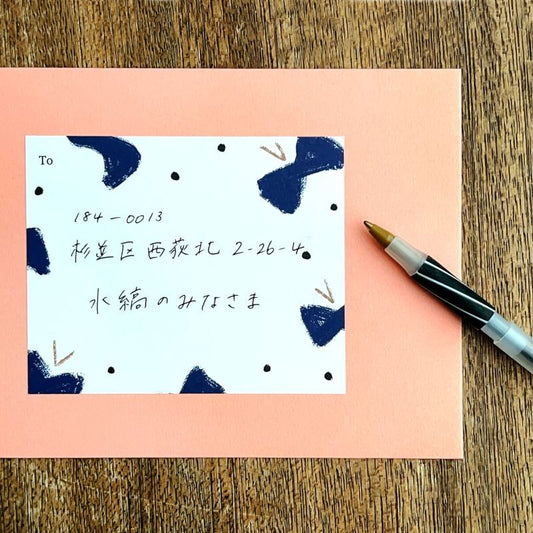 To
184-0013
杉並区西荻北2-26-4
水縞のみなさま